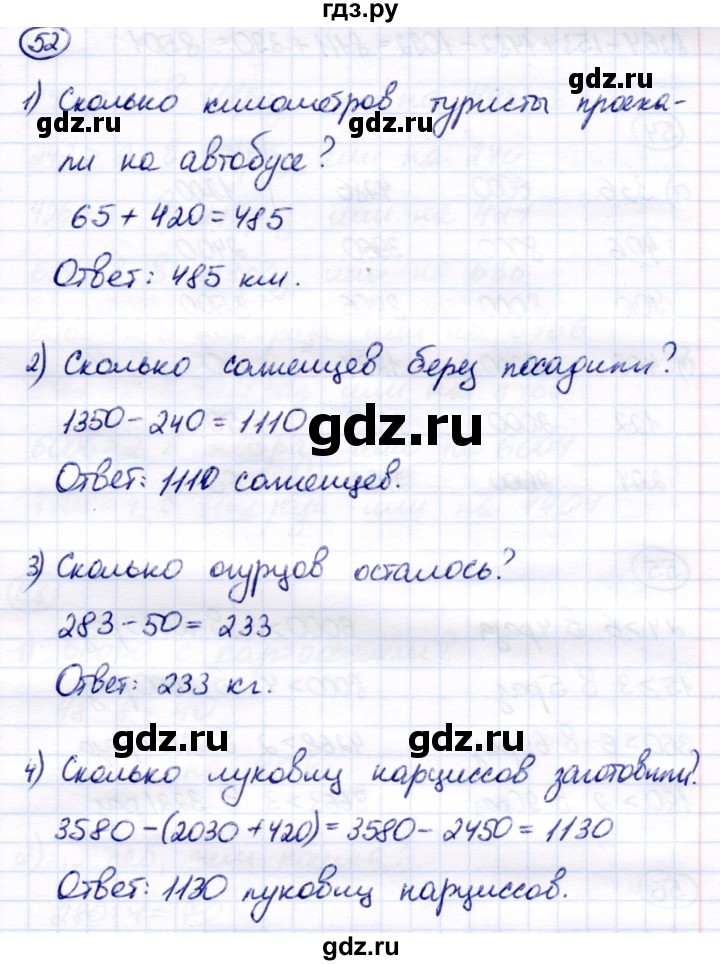 гдз.ру
52
1) Сколько километров туристы проеха-
ли на автобусе?
65 + 420 = 485
Ответ: 485 км.
2) Сколько саженцев берез посадили?
1350 - 240 = 1110
Ответ: 1110 саженцев.
3) Сколько огурцов осталось?
283 - 50 = 233
Ответ: 233 кг.
4) Сколько луковиц нарциссов заготовили?
3580 - (2030 + 420) = 3580 - 2450 = 1130
Ответ: 1130 луковиц нарциссов.
gdz.ru
gdz.ru
gdz.ru
gdz.ru
gdz.ru
gdz.ru
gdz.ru